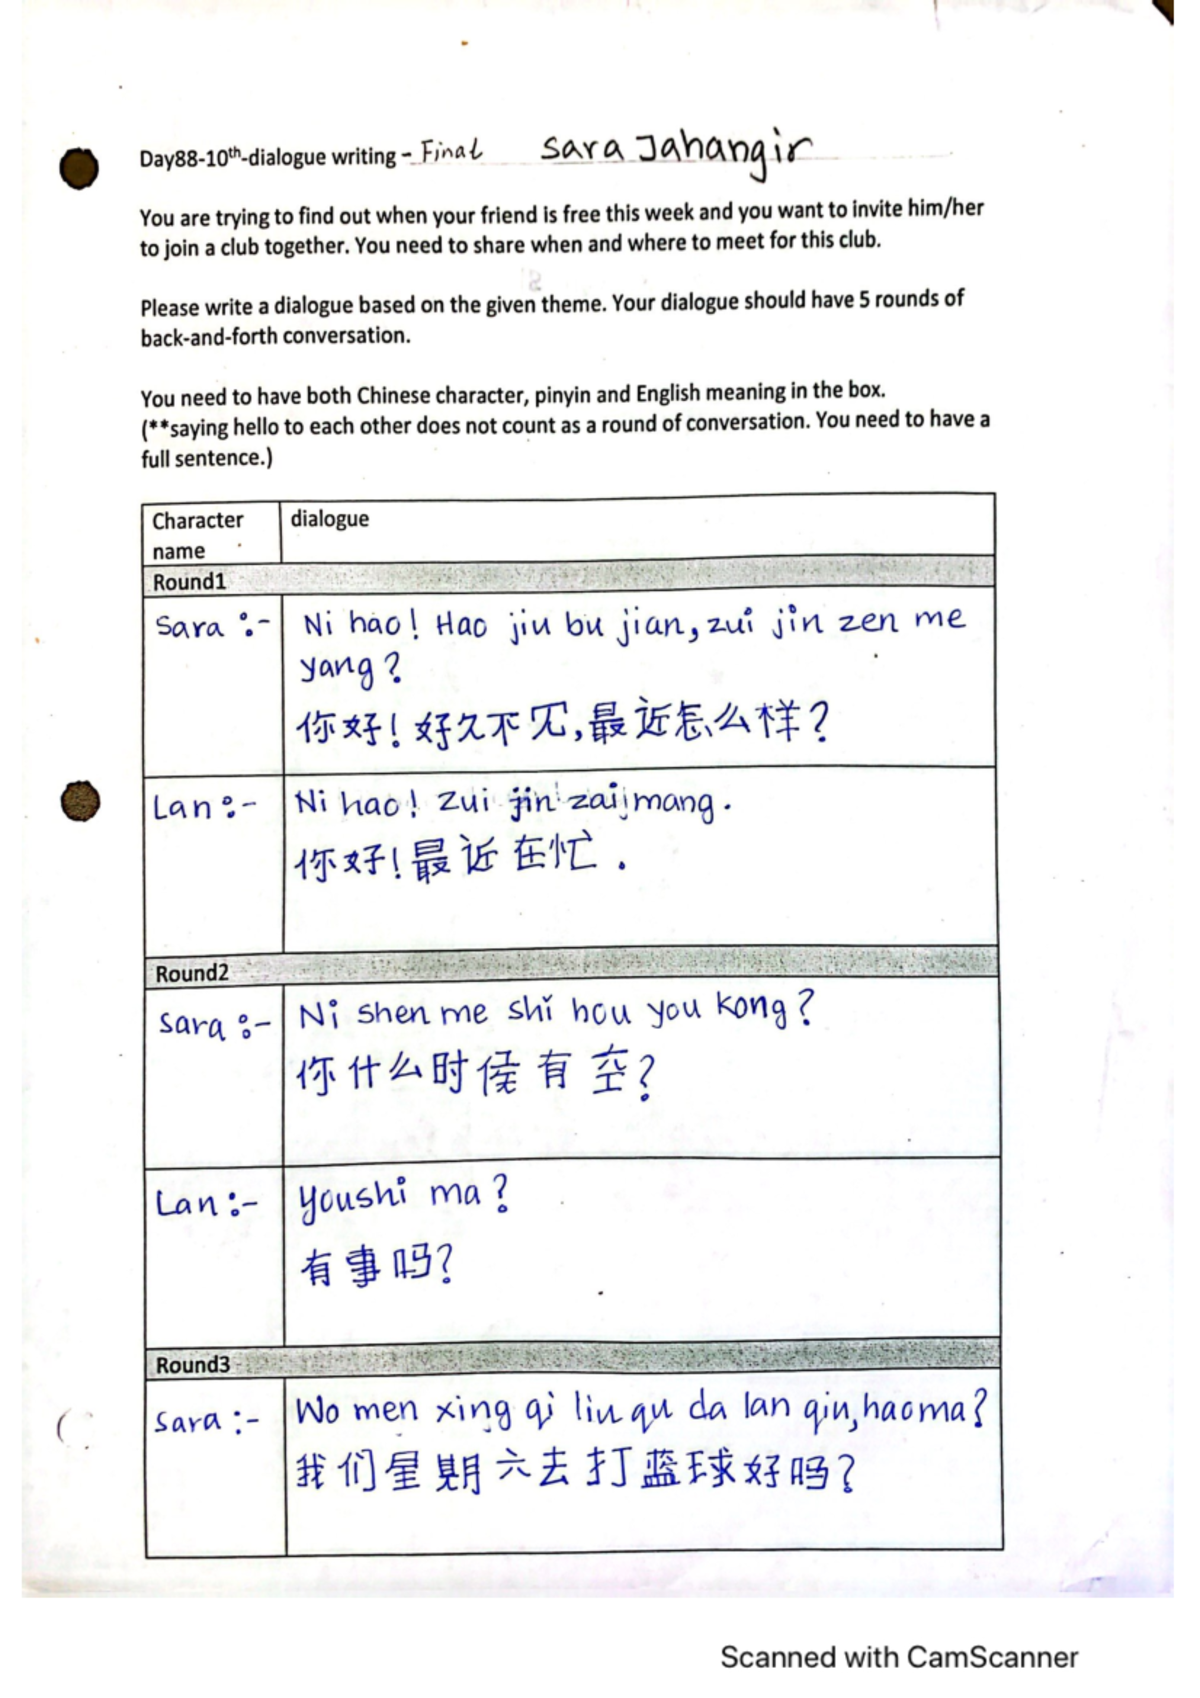 Day88-10th-dialogue writing - Final Sara Jahangir
You are trying to find out when your friend is free this week and you want to invite him/her
to join a club together. You need to share when and where to meet for this club.
Please write a dialogue based on the given theme. Your dialogue should have 5 rounds of
back-and-forth conversation.
You need to have both Chinese character, pinyin and English meaning in the box.
(**saying hello to each other does not count as a round of conversation. You need to have a
full sentence.)
Character dialogue
name
Round1
Sara :- Ni hao! Hao jiu bu jian, zui jin zen me
yang?
你好! 好久不见, 最近怎么样?
Lan :- Ni hao! Zui jin zai mang.
你好! 最近在忙.
Round2
Sara :- Ni shen me shí hou you kong?
你什么时候有空?
Lan :- youshi ma?
有事吗?
Round3
Sara :- Wo men xing qi liu qu da lan qiu, hao ma?
我们星期六去打蓝球好吗?
Scanned with CamScanner